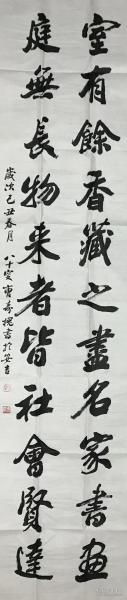 室有餘香藏之盡名家書画
庭無長物来者皆社會賢達
歲次己丑春月
八十叟曹壽槐書於安吉